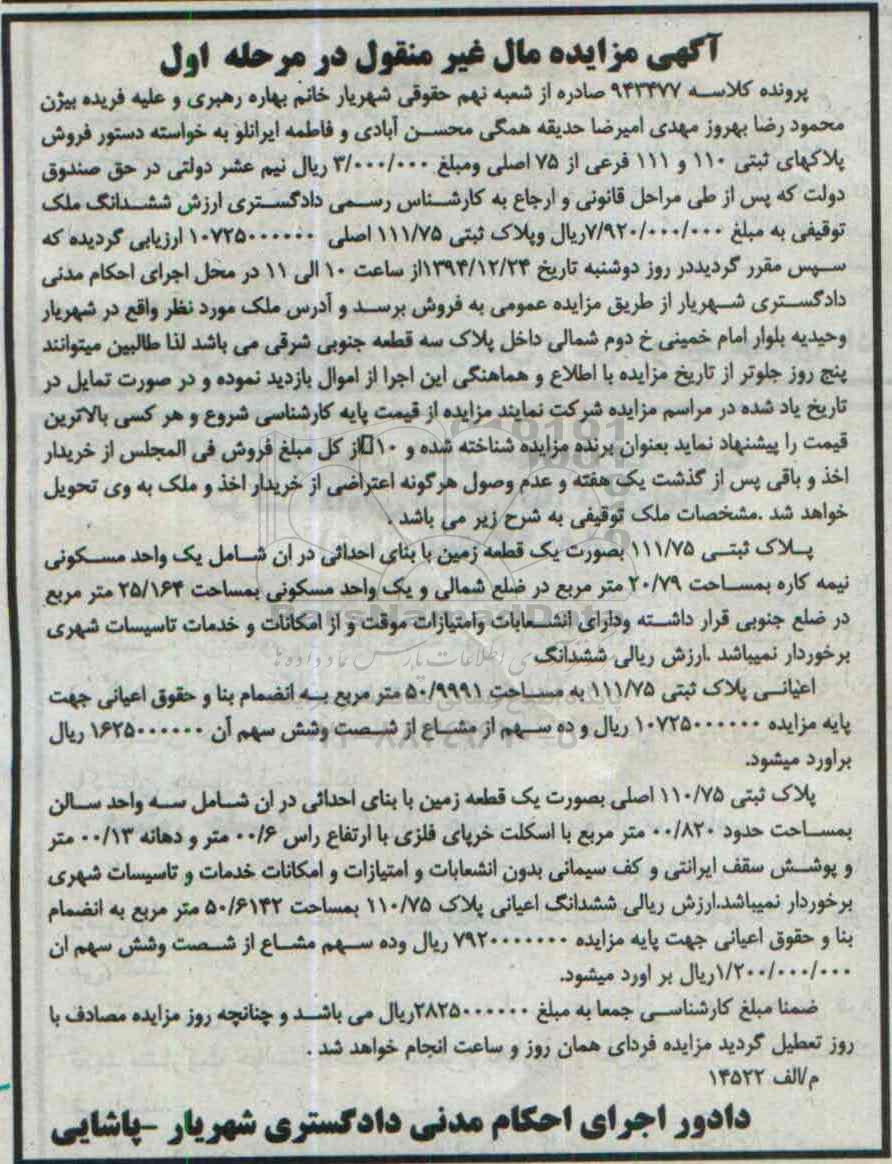 آگهی مزایده مال غیر منقول در مرحله اول
پرونده کلاسه ۹۴۳۴۷۷ صادره از شعبه نهم حقوقی شهریار خانم بهاره رهبری و علیه فریده بیژن
محمود رضا بهروز مهدی امیرضا حدیقه همگی محسن آبادی و فاطمه ایرانلو به خواسته دستور فروش
پلاکهای ثبتی ۱۱۰ و ۱۱۱ فرعی از ۷۵ اصلی ومبلغ ۳/۰۰۰/۰۰۰ ریال نیم عشر دولتی در حق صندوق
دولت که پس از طی مراحل قانونی و ارجاع به کارشناس رسمی دادگستری ارزش ششدانگ ملک
توقیفی به مبلغ ۷/۹۲۰/۰۰۰/۰۰۰ریال وپلاک ثبتی ۱۱۱/۷۵ اصلی ۱۰۷۲۵۰۰۰۰۰۰ ارزیابی گردیده که
سپس مقرر گردیددر روز دوشنبه تاریخ ۱۳۹۴/۱۲/۲۴از ساعت ۱۰ الی ۱۱ در محل اجرای احکام مدنی
دادگستری شهریار از طریق مزایده عمومی به فروش برسد و آدرس ملک مورد نظر واقع در شهریار
وحیدیه بلوار امام خمینی خ دوم شمالی داخل پلاک سه قطعه جنوبی شرقی می باشد لذا طالبین میتوانند
پنج روز جلوتر از تاریخ مزایده با اطلاع و هماهنگی این اجرا از اموال بازدید نموده و در صورت تمایل در
تاریخ یاد شده در مراسم مزایده شرکت نمایند مزایده از قیمت پایه کارشناسی شروع و هر کسی بالاترین
قیمت را پیشنهاد نماید بعنوان برنده مزایده شناخته شده و ۱۰از کل مبلغ فروش فی المجلس از خریدار
اخذ و باقی پس از گذشت یک هفته و عدم وصول هرگونه اعتراضی از خریدار اخذ و ملک به وی تحویل
خواهد شد .مشخصات ملک توقیفی به شرح زیر می باشد .
پلاک ثبتی ۱۱۱/۷۵ بصورت یک قطعه زمین با بنای احداثی در ان شامل یک واحد مسکونی
نیمه کاره بمساحت ۲۰/۷۹ متر مربع در ضلع شمالی و یک واحد مسکونی بمساحت ۲۵/۱۶۴ متر مربع
در ضلع جنوبی قرار داشته ودارای انشعابات وامتیازات موقت و از امکانات و خدمات تاسیسات شهری
برخوردار نمیباشد .ارزش ریالی ششدانگ
اعیانی پلاک ثبتی ۱۱۱/۷۵ به مساحت ۵۰/۹۹۹۱ متر مربع به انضمام بنا و حقوق اعیانی جهت
پایه مزایده ۱۰۷۲۵۰۰۰۰۰۰ ریال و ده سهم از مشاع از شصت وشش سهم آن ۱۶۲۵۰۰۰۰۰۰ ریال
براورد میشود.
پلاک ثبتی ۱۱۰/۷۵ اصلی بصورت یک قطعه زمین با بنای احداثی در ان شامل سه واحد سالن
بمساحت حدود ۰۰/۸۲۰ متر مربع با اسکلت خرپای فلزی با ارتفاع راس ۰۰/۶ متر و دهانه ۰۰/۱۳ متر
و پوشش سقف ایرانتی و کف سیمانی بدون انشعابات و امتیازات و امکانات خدمات و تاسیسات شهری
برخوردار نمیباشد.ارزش ریالی ششدانگ اعیانی پلاک ۱۱۰/۷۵ بمساحت ۵۰/۶۱۴۲ متر مربع به انضمام
بنا و حقوق اعیانی جهت پایه مزایده ۷۹۲۰۰۰۰۰۰۰ ریال وده سهم مشاع از شصت وشش سهم ان
۱/۲۰۰/۰۰۰/۰۰۰ریال بر اورد میشود.
ضمنا مبلغ کارشناسی جمعا به مبلغ ۲۸۲۵۰۰۰۰۰۰ریال می باشد و چنانچه روز مزایده مصادف با
روز تعطیل گردید مزایده فردای همان روز و ساعت انجام خواهد شد .
م/الف ۱۴۵۲۲
دادور اجرای احکام مدنی دادگستری شهریار -پاشایی
ParsNamadData